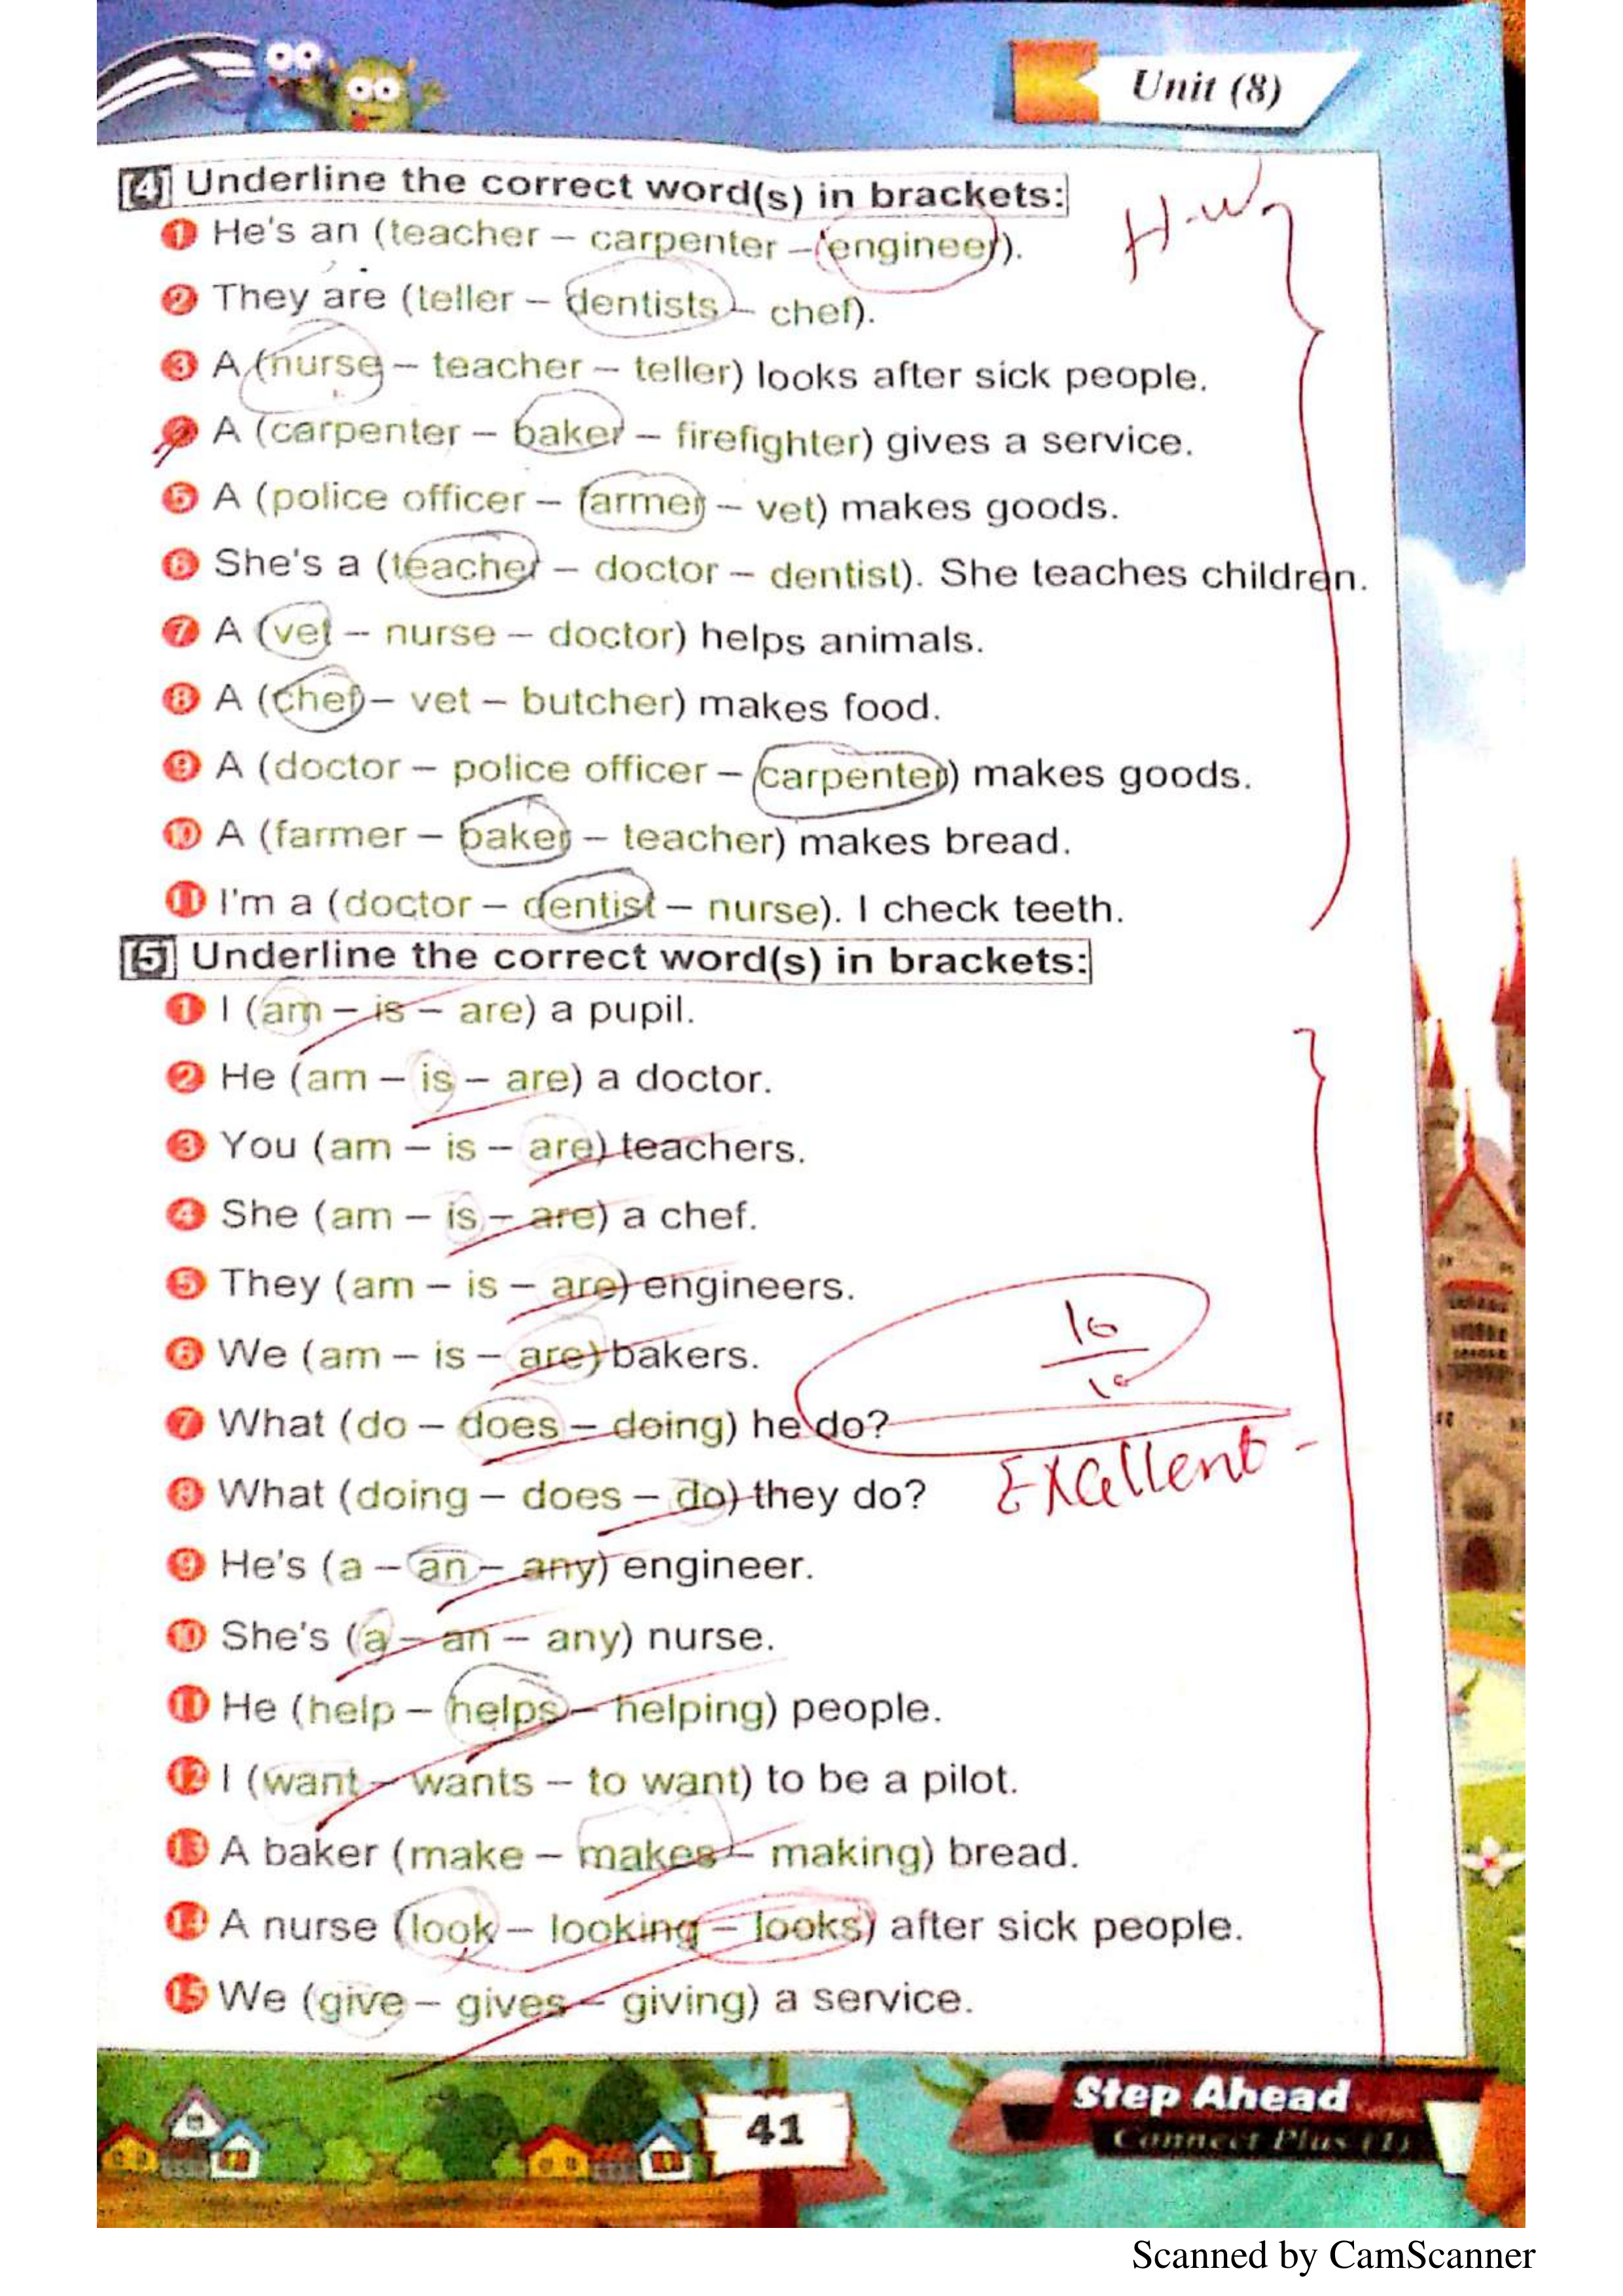 Unit (8)
[4] Underline the correct word(s) in brackets:
1 He's an (teacher – carpenter – engineer).
H.w
2 They are (teller – dentists – chef).
3 A (nurse – teacher – teller) looks after sick people.
A (carpenter – baker – firefighter) gives a service.
5 A (police officer – farmer – vet) makes goods.
6 She's a (teacher – doctor – dentist). She teaches children.
7 A (vet – nurse – doctor) helps animals.
8 A (chef – vet – butcher) makes food.
9 A (doctor – police officer – carpenter) makes goods.
10 A (farmer – baker – teacher) makes bread.
11 I'm a (doctor – dentist – nurse). I check teeth.
[5] Underline the correct word(s) in brackets:
1 I (am – is – are) a pupil.
2 He (am – is – are) a doctor.
3 You (am – is – are) teachers.
4 She (am – is – are) a chef.
5 They (am – is – are) engineers.
10
10
6 We (am – is – are) bakers.
7 What (do – does – doing) he do?
Excellent
8 What (doing – does – do) they do?
9 He's (a – an – any) engineer.
10 She's (a – an – any) nurse.
11 He (help – helps – helping) people.
12 I (want – wants – to want) to be a pilot.
13 A baker (make – makes – making) bread.
14 A nurse (look – looking – looks) after sick people.
15 We (give – gives – giving) a service.
41
Step Ahead
Connect Plus (1)
Scanned by CamScanner